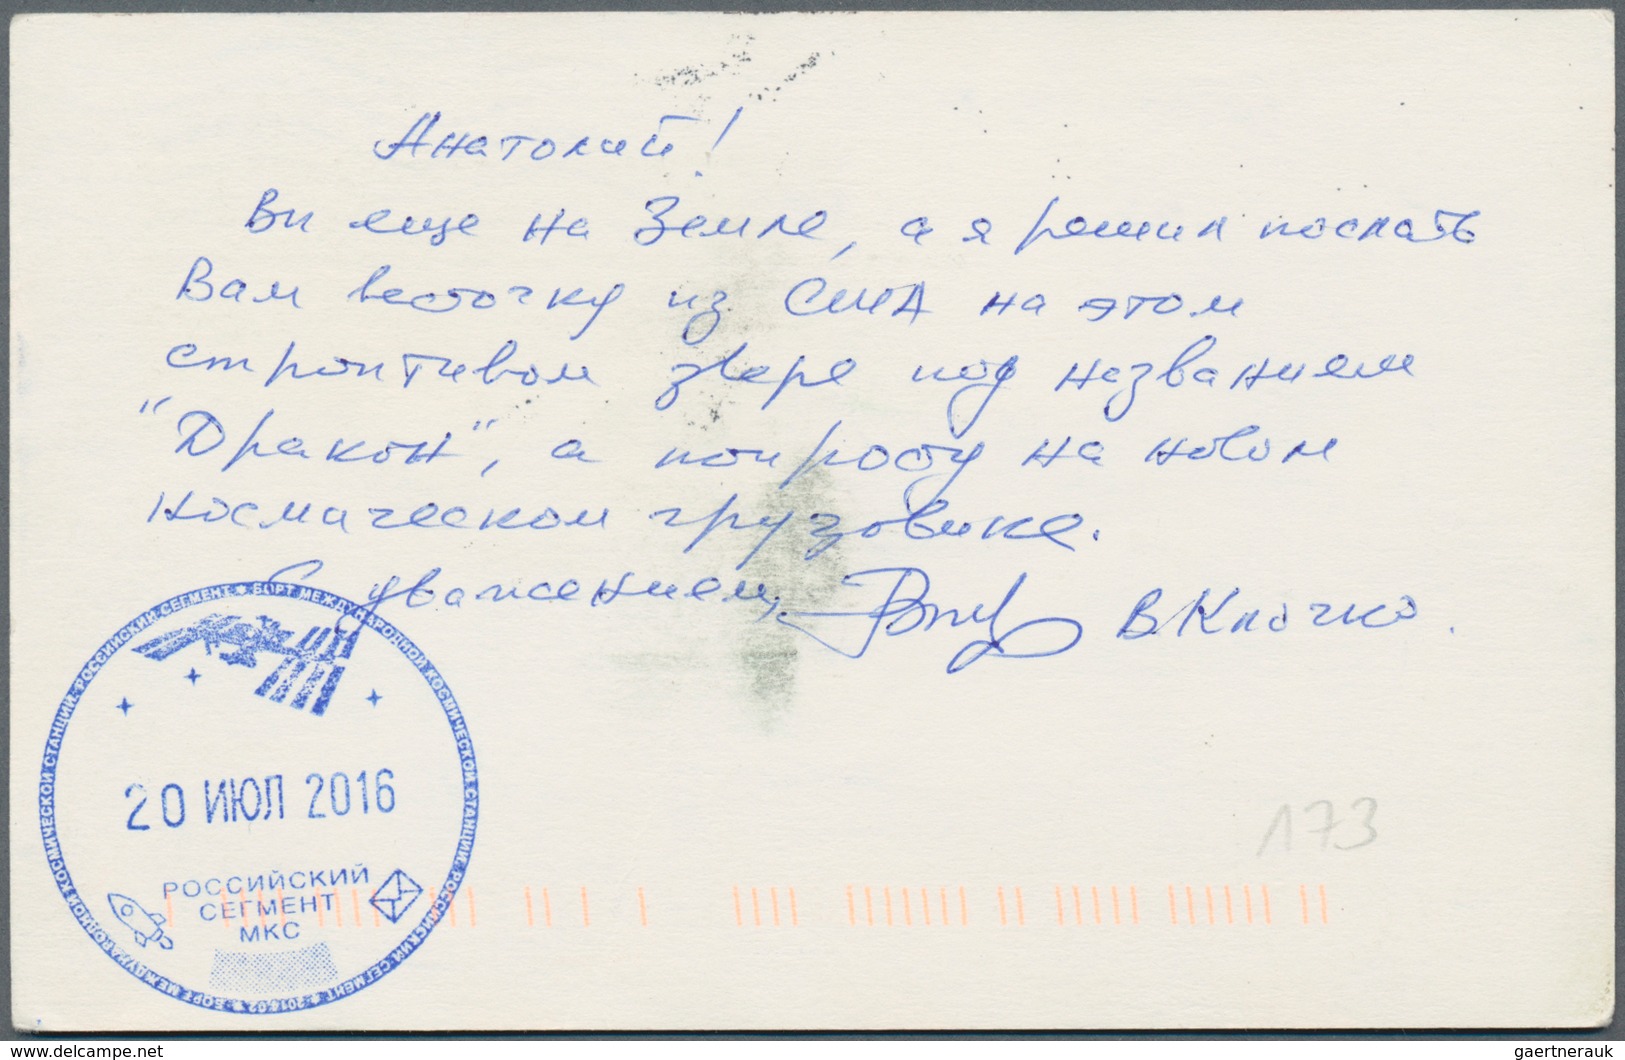 Анатолий!
Ви еще на Земле, а я решил послать
Вам весточку из США на этом
строптивом звере под названием
"Дракон", а попрошу на новом
космическом грузовике.
С уважением, В Клочко.
БОРТ МЕЖДУНАРОДНОЙ КОСМИЧЕСКОЙ СТАНЦИИ. РОССИЙСКИЙ СЕГМЕНТ ★ 2014-02 ★ БОРТ МЕЖДУНАРОДНОЙ КОСМИЧЕСКОЙ СТАНЦИИ. РОССИЙСКИЙ СЕГМЕНТ ★
20 ИЮЛ 2016
РОССИЙСКИЙ
СЕГМЕНТ
МКС
173
www.delcampe.net
gaertnerauk